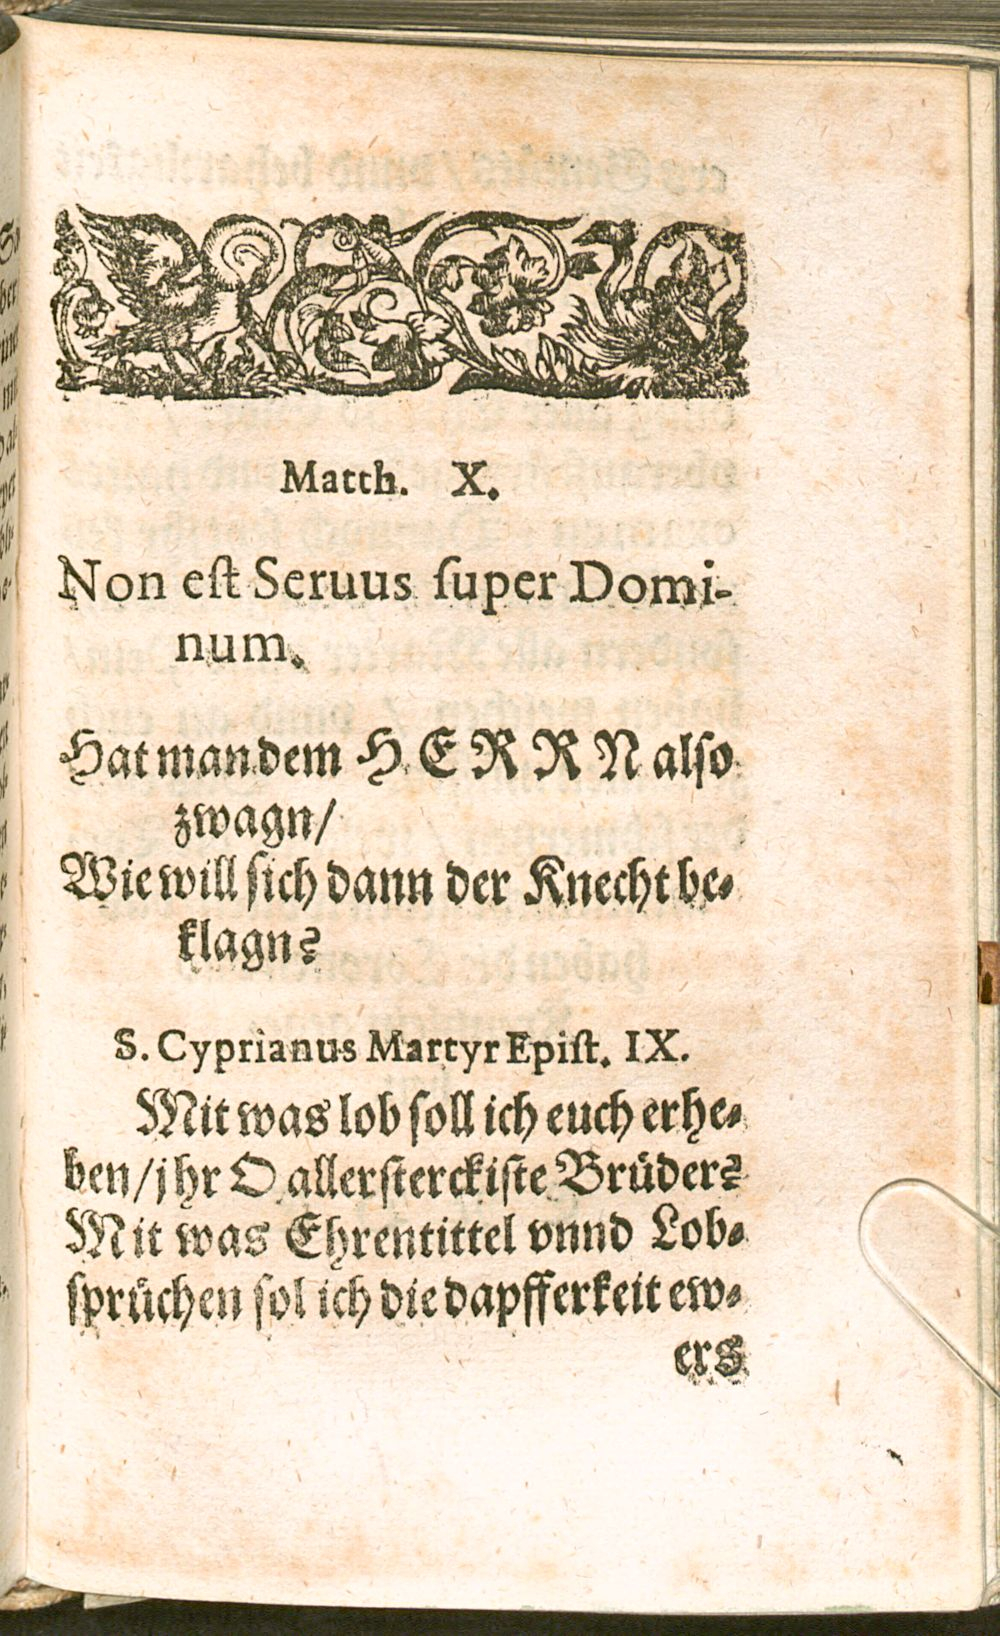 Matth. X.
Non eſt Seruus ſuper Domi-
num.
Hat man dem HERRN alſo
zwagn/
Wie will ſich dann der Knecht be-
klagn?
S. Cyprianus Martyr Epiſt. IX.
Mit was lob ſoll ich euch erhe-
ben/jhr O allerſterckiſte Brüder?
Mit was Ehrentittel vnnd Lob-
ſprüchen ſol ich die dapfferkeit ew-
ers